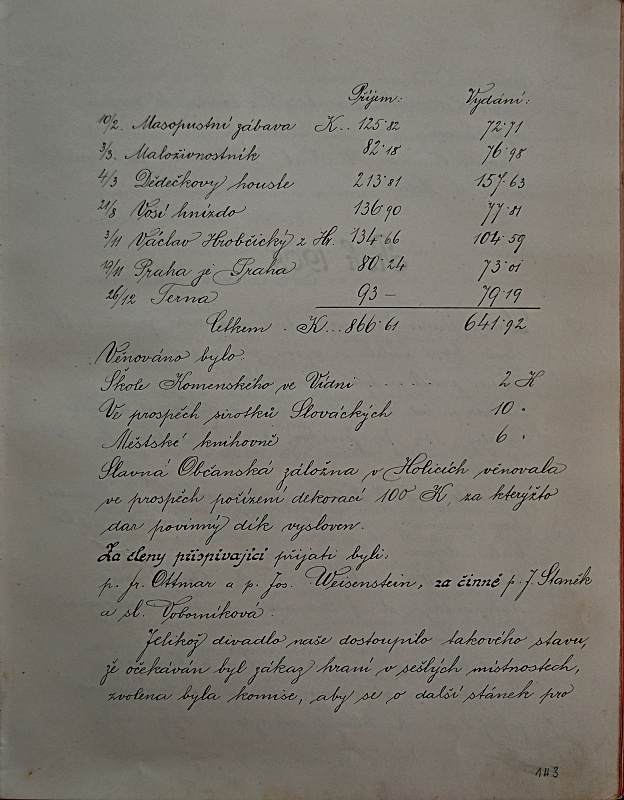 Příjem: Vydání:
10/2. Masopustní zábava K.. 125·82 72·71
3/3. Maloživnostník 82·18 76·98
4/3 Dědečkovy housle 213·81 157·63
21/8 Vosí hnízdo 136·90 77·81
3/11 Václav Hrobčický z Hr. 134·66 104·59
19/11 Praha je Praha 80·24 73·01
26/12 Terna 93 — 79·19
Celkem . K... 866·61 641·92
Věnováno bylo:
Škole Komenského ve Vídni . . . . . 2 K
Ve prospěch sirotků Slováckých 10 "
Městské knihovně 6 "
Slavná Občanská záložna v Holicích věnovala
ve prospěch pořízení dekorací 100 K, za kterýžto
dar povinný dík vysloven.
Za členy přispívající přijati byli:
p. Fr. Ottmar a p. Jos. Weisenstein, za činné p. J. Staněk
a sl. Voborníková.
Jelikož divadlo naše dostoupilo takového stavu,
že očekáván byl zákaz hraní v sešlých místnostech,
zvolena byla komise, aby se o další stánek pro
143